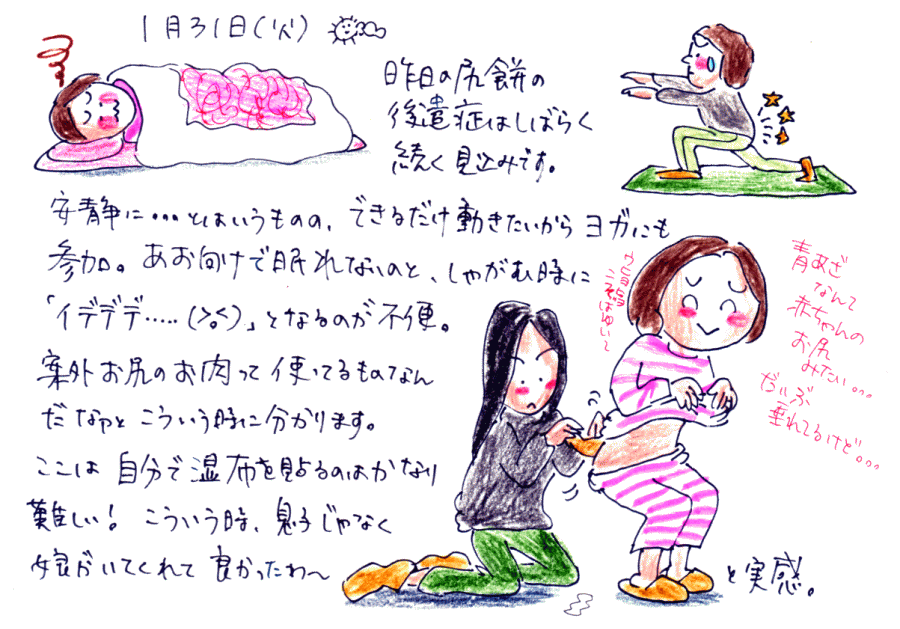 1月31日(火)
昨日の尻餅の
後遺症はしばらく
続く見込みです。
安静に・・・とはいうものの、できるだけ動きたいからヨガにも
参加。あお向けで眠れないのと、しゃがむ時に
「イデデデ・・・・・(>。<)」となるのが不便。
案外お尻のお肉って使ってるものなん
だなぁとこういう時に分かります。
ここは自分で湿布を貼るのはかなり
難しい！こういう時、息子じゃなく
娘がいてくれて良かったわ〜
と実感。
青あざ
なんて
赤ちゃんの
お尻
みたい・・・
だいぶ
垂れてるけど・・・